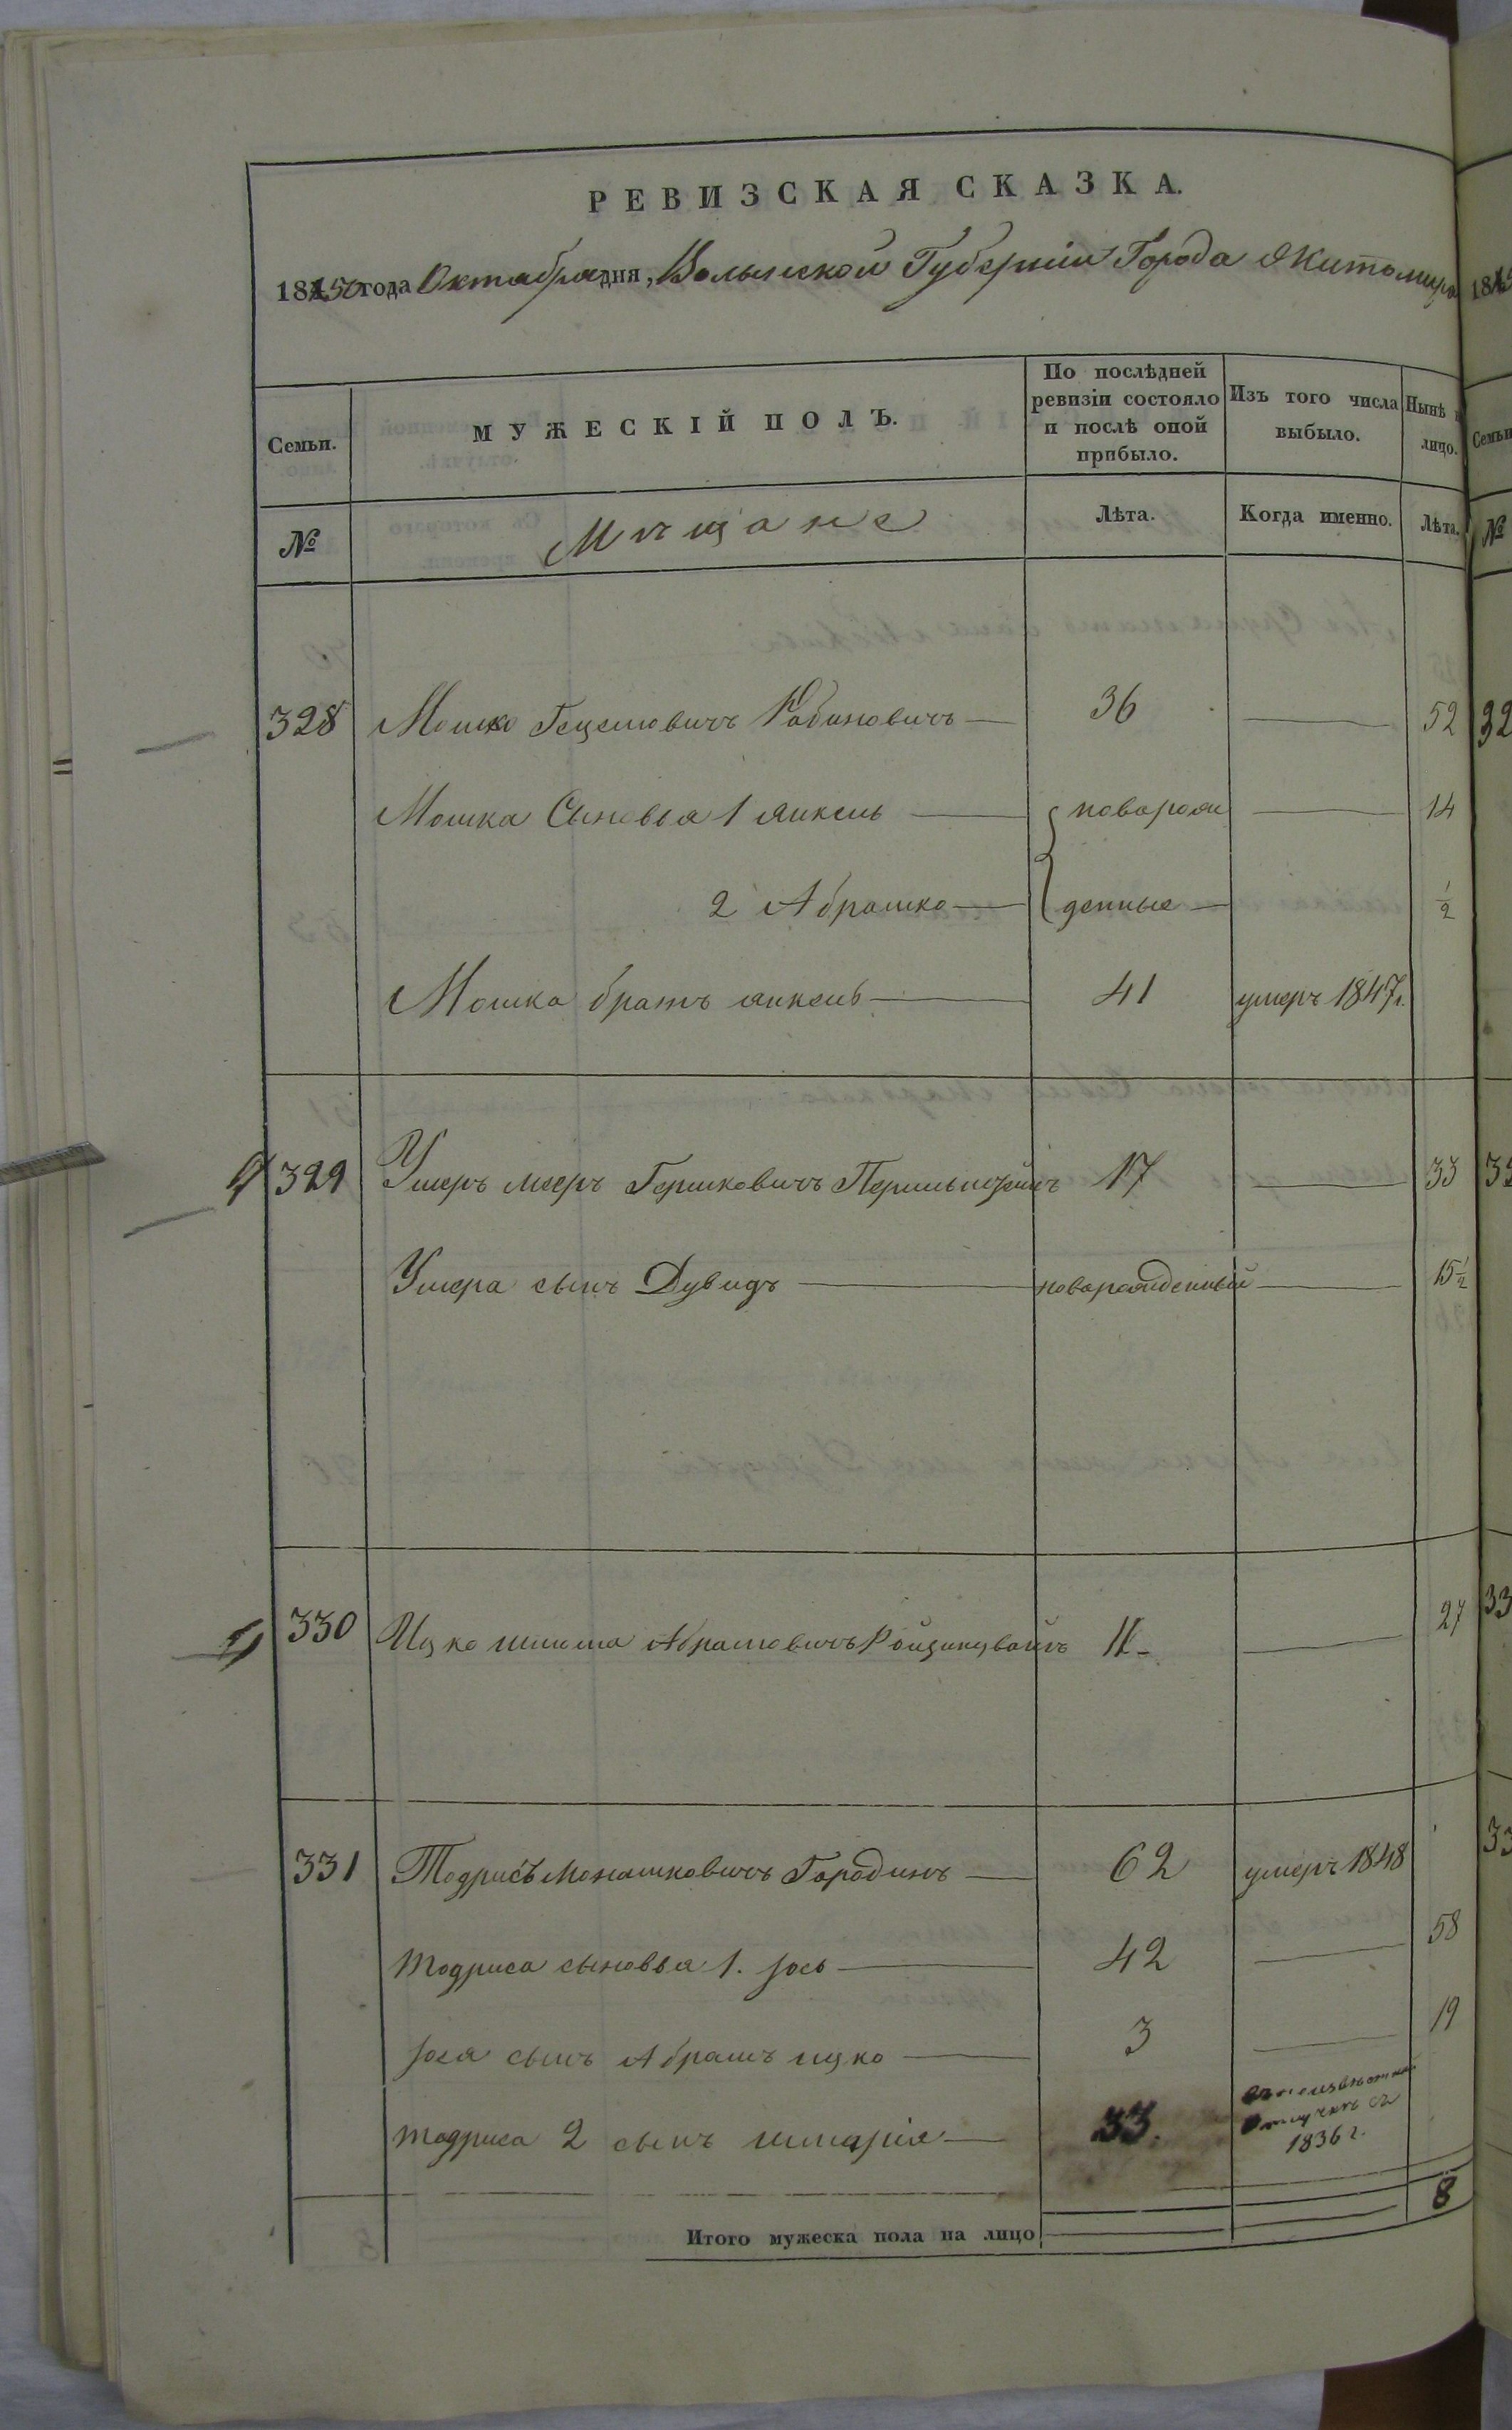 РЕВИЗСКАЯ СКАЗКА.
1850 года Октября дня, Волынской Губерніи Города Житомира
Семьи. МУЖЕСКІЙ ПОЛЪ. По послѣдней ревизіи состояло и послѣ оной прибыло. Изъ того числа выбыло. Нынѣ на лицо.
№ Мѣщане Лѣта. Когда именно. Лѣта.
328 Мошко Гецелевичъ Рабиновичъ — 36 — 52
Мошка Сыновья 1 Янкель — новорож — 14
2 Абрашко — денные — 1/2
Мошка братъ Янкель — 41 умеръ 1847г.
329 Ушеръ Мееръ Гершковичъ 17 — 33
Ушера сынъ Дувидъ — новорожденный — 15 1/2
330 Ицко Шлиома Абрамовичъ 11 — 27
331 Тодрисъ Монашковичъ Городинъ — 62 умеръ 1848
Тодриса сыновья 1. Іось — 42 — 58
Іося сынъ Абрамъ Ицко — 3 — 19
Тодриса 2 сынъ Шмарія — 33. отлученъ съ 1836 г.
Итого мужеска пола на лицо 8
18
№